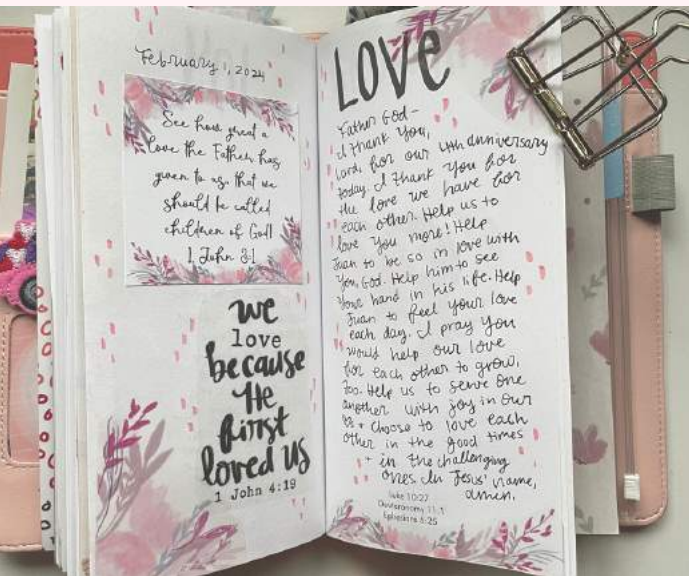 February 1, 2024
See how great a
love the Father has
given to us that we
should be called
children of God!
1 John 3:1
we
love
because
He
first
loved us
1 John 4:19
LOVE
Father God-
I thank You,
Lord, for our 4th anniversary
today. I thank You for
the love we have for
each other. Help us to
love You more! Help
Juan to be so in love with
You, God. Help him to see
Your hand in his life. Help
Juan to feel Your love
each day. I pray You
would help our love
for each other to grow,
too. Help us to serve one
another with joy in our
+ choose to love each
other in the good times
+ in the challenging
ones. In Jesus' name,
amen.
Luke 10:27
Deuteronomy 11:1
Ephesians 5:25